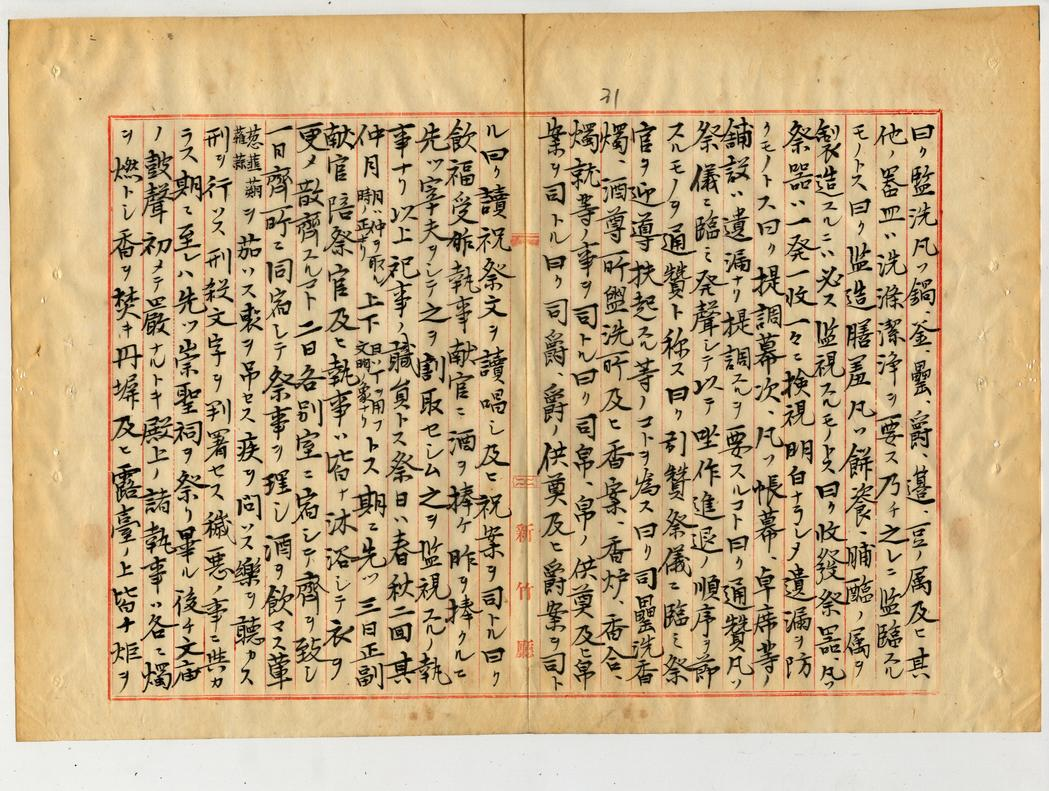 31
曰ク監洗凡ソ鍋、釜、罍、爵、籩、豆ノ属及ヒ其
他ノ器皿ハ洗滌潔浄ヲ要ス乃チ之レニ監臨スル
モノトス曰ク監造膳羞凡ソ餅餈、脯醢ノ属ヲ
製造スルニハ必ス監視スルモノトス曰ク收發祭器凡ソ
祭器ハ一発一收一々ニ検視明白ナラシメ遺漏ヲ防
クモノトス曰ク提調幕次、凡ソ帳幕、卓席等ノ
舗設ハ遺漏ナリ提調スルヲ要スルコト曰ク通贊凡ソ
祭儀ニ臨ミ発聲シテ以テ坐作進退ノ順序ヲ節
スルモノヲ通贊ト称ス曰ク引贊祭儀ニ臨ミ祭
官ヲ迎導扶起スル等ノコトヲ為ス曰ク司罍洗香
燭、酒尊所盥洗所及ヒ香案、香炉、香合、
燭就等ノ事ヲ司トル曰ク司帛、帛ノ供奠及ヒ帛
案ヲ司トル曰ク司爵、爵ノ供奠及ヒ爵案ヲ司ト
新竹廳
ル曰ク讀祝祭文ヲ讀唱シ及ヒ祝案ヲ司トル曰ク
飲福受胙執事献官ニ酒ヲ捧ケ胙ヲ捧クルニ
先ツ宰夫ヲシテ之ヲ割取セシム之ヲ監視スルノ執
事ナリ以上祀事ノ職員トス祭日ハ春秋二回其
仲月月ハ仲ヲ取ル時ノ正ナリ上下丁ヲ用フ文明ノ象ナリトス期ニ先ツ三日正副
献官陪祭官及ヒ執事ハ皆ナ沐浴シテ衣ヲ
更メ散齊スルコト二日各別室ニ宿シテ齊ヲ致シ
一日齊所ニ同宿シテ祭事ヲ理シ酒ヲ飲マス葷
葱韮薤蒜蒻ヲ茹ハス喪ヲ吊セス疾ヲ問ハス樂ヲ聽カス
刑ヲ行ハス刑殺文字ヲ判署セス穢悪ノ事ニ與カ
ラス期ニ至レハ先ツ崇聖祠ヲ祭リ畢ル後チ文廟
ノ鼓聲初メテ嚴ナルトキ殿上ノ諸執事ハ各ニ燭
ヲ燃トシ香ヲ焚キ丹墀及ヒ露臺ノ上皆ナ炬ヲ